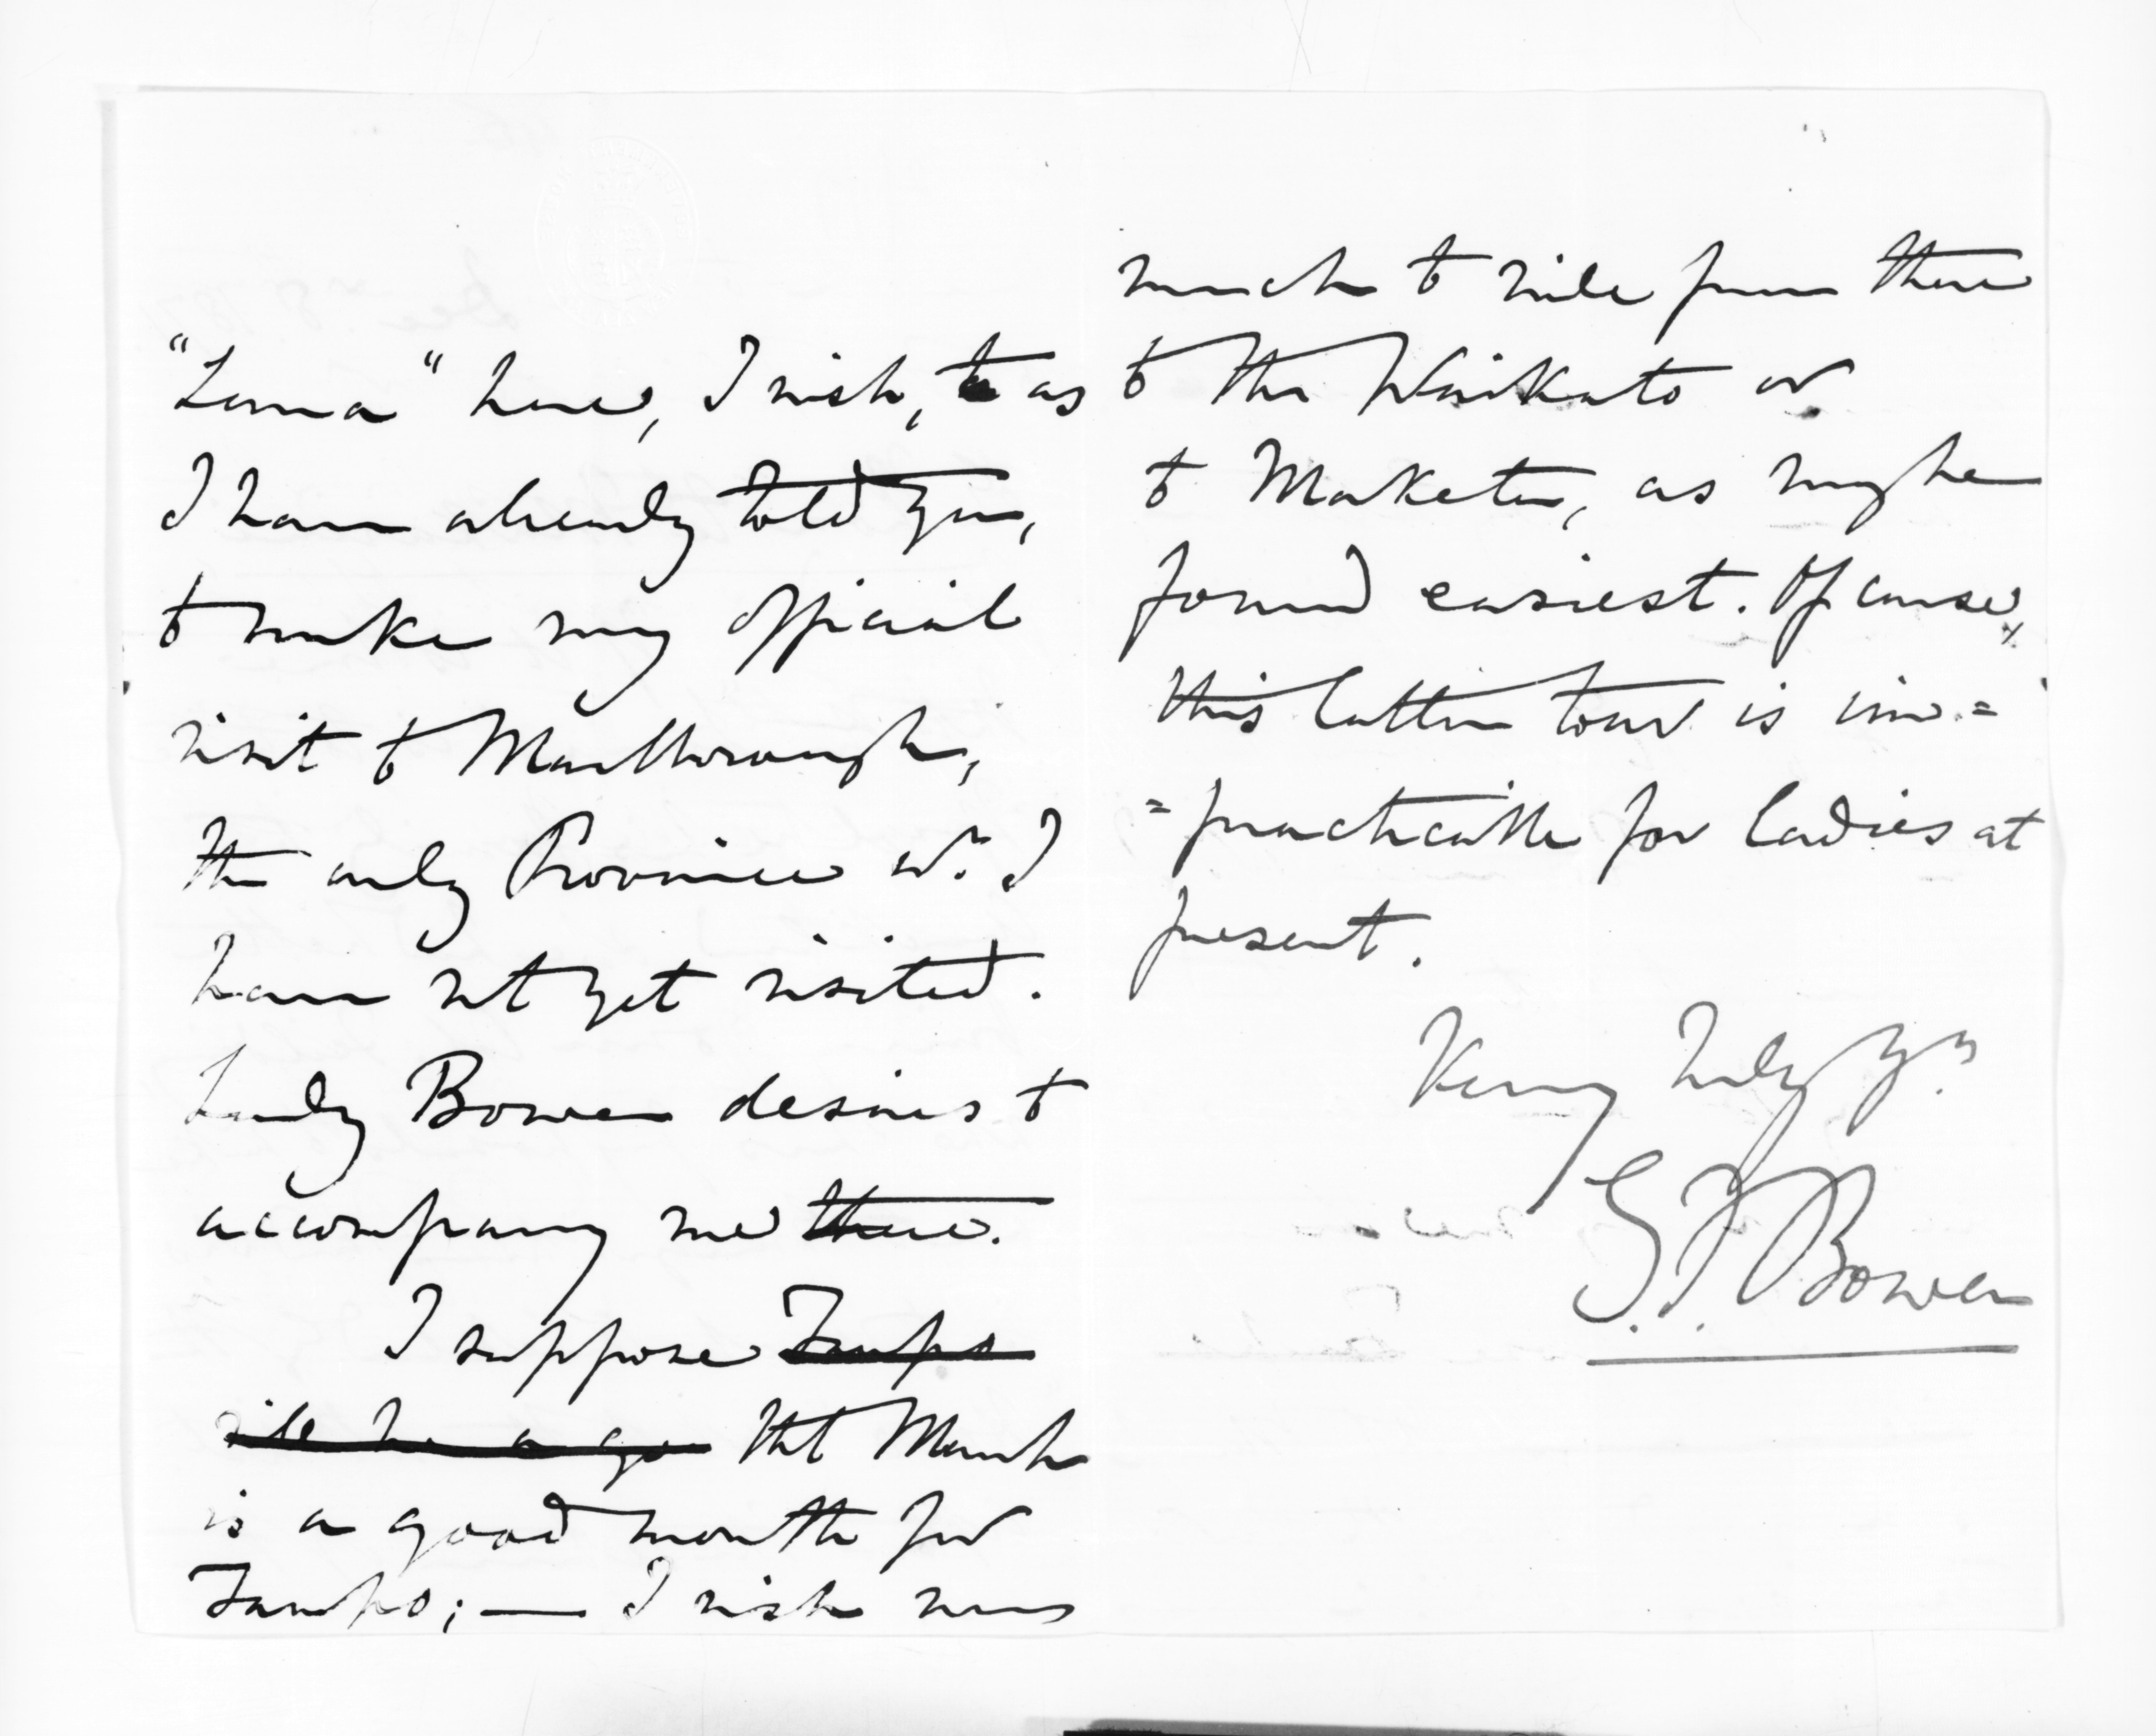 "Luna" here, I wish, to as
I have already told you,
to make my official
visit to Marlborough,
the only Province wh. I
have not yet visited.
Lady Bowen desires to
accompany me there.
I suppose Taupo
will be a goo that March
is a good month for
Taupo; — I wish very
much to ride from there
to the Waikato or
to Maketu, as may be
found easiest. Of course,
this latter tour is im=
=practicable for ladies at
present.
Very truly yrs.
G.F. Bowen